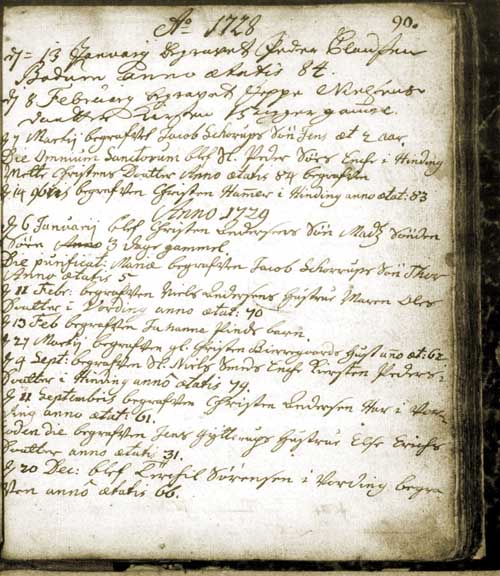 Ao 1728
90.
d = 13 Januarij begravet Peder Clausen
anno ætatis 84.
d 8 Februarij begravet Jeppe Nielsens
daatter Kirsten gammel.
d 7 Martij begrafvet Jacob Schorups Søn Jens æt 2 aar.
Die Omnium Sanctorum blef Sl. Peder Enche i Hinding
Mette Christens Daatter Anno ætatis 84 begrafven
begrafven Christen Hamer i Hinding anno ætat: 83
Anno 1729
d 6 Januarij blef Christen Andersens Søn Madtz Sønden
Søren 3 Dage gammel.
Die purificat: Mariæ begrafven Jacob Schorrups Søn Thor
Anno ætatis 5
d 11 Febr: begrafven Niels Andersens Hustrue Maren Oles
Daatter i Vording anno ætat: 70
d 13 Feb begrafven Johanna Pinds barn.
d 27 Martij begrafven gl. Christen Bierregaards Hust año æt: 62
d 4 Sept: begrafven Sl. Niels Smeds Enche Kiersten Peders:
Daatter i Hinding anno ætatis 79.
d 11 Septembris begrafven Christen Andersen Har i Vor=
ding anno ætat: 61.
eoden die begrafven Jens Gyttrups Hustrue Else Erichs
Daatter anno ætatis 31.
d 20 Dec: blef Terchil Sørensen i Vording begra
ven anno ætatis 66.